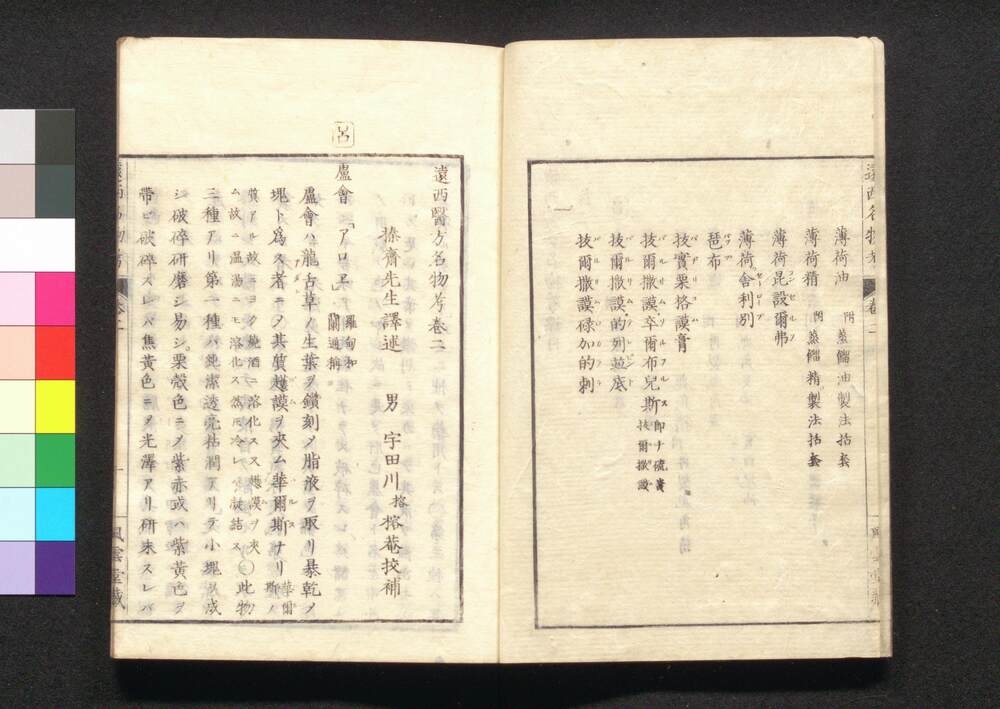 薄荷油 附 蒸餾油製法括套
薄荷精 附 蒸餾精製法括套
薄荷昆設爾弗 コンセルフ
薄荷舎利別 セーロープ
琶布 パップ
抜實栗格謨膏
抜爾撒謨卒爾布兒斯 即ナ硫黄抜爾撒謨
抜爾撒謨的列並底
抜爾撒謨碌加的刺
呂
遠西醫方名物考卷二
榛齋先生譯述 男 宇田川榕榕菴挍補
蘆會「アロエ」羅甸和蘭通稱
蘆會ハ龍舌草ノ生葉ヲ鑚刻ノ脂液ヲ取リ暴乾ノ
塊ト爲ス者ニノ其質謨ヲ夾ム華爾斯ナリ 華爾斯ノ
質アル故ニヨク燒酒ニ溶化ス謨ヲ夾
ム故ニ温湯ニモ溶化ス然𪜈冷レハ凝結ス 〇此物
三種アリ第一種ハ純潔透亮粘潤アリテ小塊ヲ成
シ破碎研磨シ易シ。栗殻色ニノ紫赤或ハ紫黄色ヲ
帶ビ破碎スレバ焦黄色ニノ光澤アリ研末スレバ